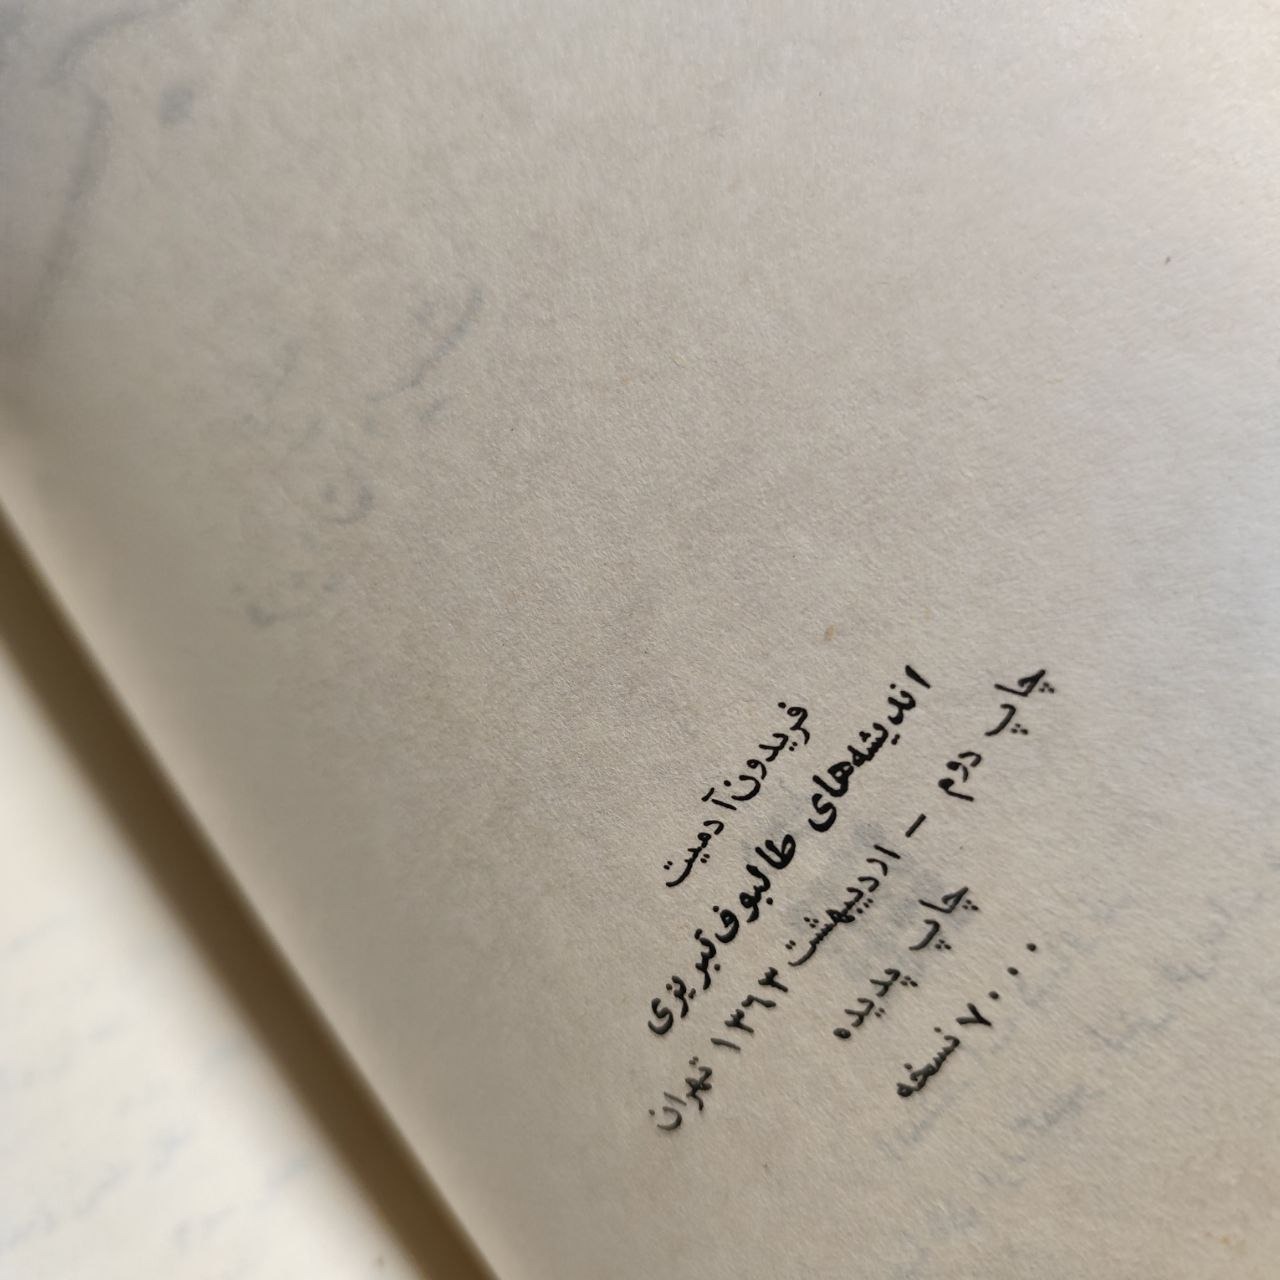 فریدون آدمیت
اندیشه‌های طالبوف تبریزی
چاپ دوم – اردیبهشت ۱۳۶۳ تهران
چاپ پدیده
۷۰۰۰ نسخه